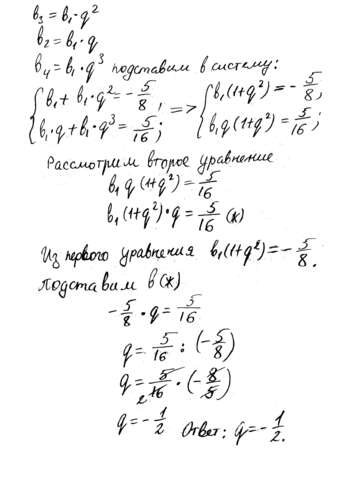 в₃ = в₁·q²
в₂ = в₁·q
в₄ = в₁·q³ подставим в систему:
{ в₁ + в₁·q² = -5/8, => { в₁(1+q²) = -5/8,
{ в₁·q + в₁·q³ = 5/16; { в₁q(1+q²) = 5/16;
Рассмотрим второе уравнение
в₁ q (1+q²) = 5/16
в₁(1+q²)·q = 5/16 (ж)
Из первого уравнения в₁(1+q²) = -5/8.
подставим в (ж)
-5/8 · q = 5/16
q = 5/16 : (-5/8)
q = 5/16 2 · (-8/5)
q = -1/2 Ответ: q = -1/2.